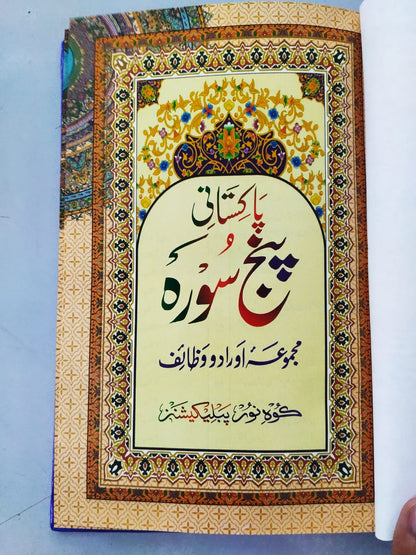 پاکستانی
پنج سُورہ
مجموعۂ اورادو وظائف
کوہ نور پبلیکیشنز